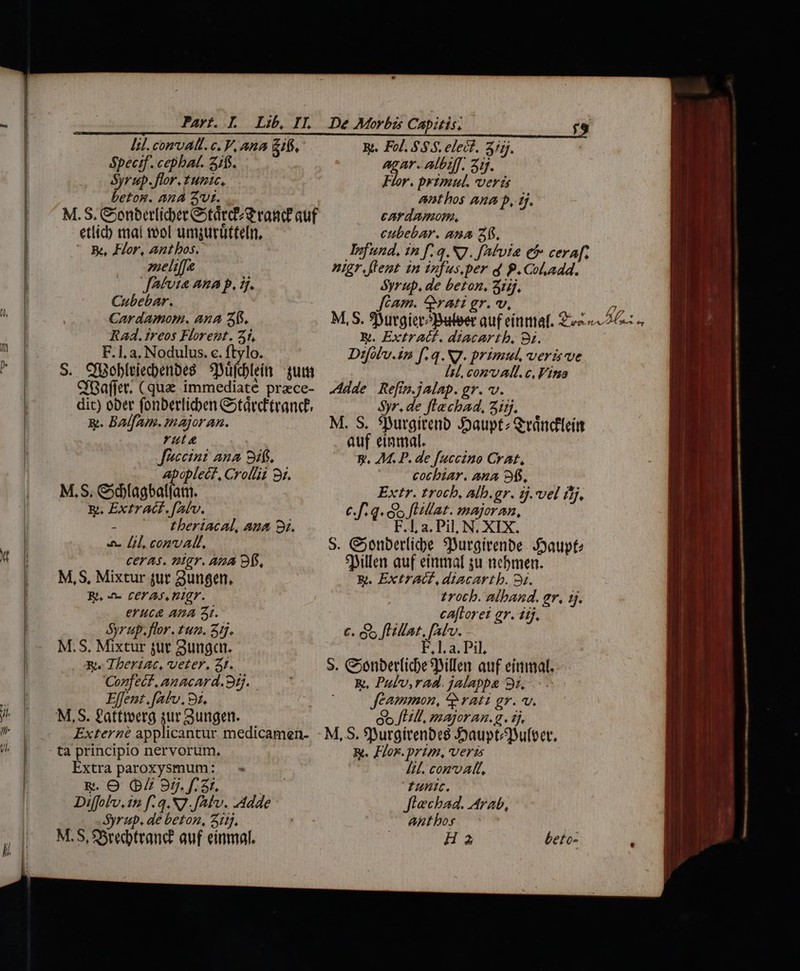 Part. I. Lib. II. De Morbis Capitis. 59
lil. convall. c. V. ana ℥iß.
Specif. cephal. ʒiß.
Syrup. flor. tunic.
beton. ana ʒvi.
M. S. Sonderlicher Stärck-Tranck auf
etlich mal wol umzurütteln.
℞. Flor. anthos.
melissæ
salviæ ana p. ij.
Cubebar.
Cardamom. ana ʒß.
Rad. ireos Florent. ʒi.
F. l. a. Nodulus. c. stylo.
S. Wohlriechendes Püschlein zum
Wasser. (quæ immediatè præce-
dit) oder sonderlichen Stärcktranck.
℞. Balsam. majoran.
rutæ
succini ana ℈iß.
apoplect. Crollii ℈i.
M. S. Schlagbalsam.
℞. Extract. salv.
theriacal. ana ℈i.
lil. convall.
ceras. nigr. ana ℈ß.
M. S. Mixtur zur Zungen.
℞. ceras. nigr.
erucæ ana ʒi.
Syrup. flor. tun. ʒij.
M. S. Mixtur zur Zungen.
℞. Theriac. veter. ʒi.
Confect. anacard. ℈ij.
Essent. salv. ℈i.
M. S. Lattwerg zur Zungen.
Externè applicantur medicamen-
ta principio nervorum.
Extra paroxysmum:
℞. ℈ij. s. ʒi.
Dissolv. in s. q. 🜄. salv. Adde
Syrup. de beton. ʒiij.
M. S. Brechtranck auf einmal.
℞. Fol. SSS. elect. ʒiij.
agar. albiss. ʒij.
Flor. primul. veris
anthos ana p. ij.
cardamom.
cubebar. ana ʒß.
Infund. in s. q. 🜄. salviæ & ceras.
nigr. stent in infus. per d P. Col. add.
Syrup. de beton. ʒiij.
scam. rati gr. v.
M. S. Purgier-Pulver auf einmal.
℞. Extract. diacarth. ℈i.
Dissolv. in s. q. 🜄. primul. veris ve
lil. convall. c. Vino
Adde Resin. jalap. gr. v.
Syr. de stœchad. ʒiij.
M. S. Purgirend Haupt-Träncklein
auf einmal.
℞. M. P. de succino Crat.
cochiar. ana ℈ß.
Extr. troch. alh. gr. ij. vel iij.
c. s. q. stillat. majoran.
F. l. a. Pil. N. XIX.
S. Sonderliche Purgirende Haupt-
Pillen auf einmal zu nehmen.
℞. Extract. diacarth. ℈i.
troch. alhand. gr. ij.
castorei gr. iij.
c. stillat. salv.
F. l. a. Pil.
S. Sonderliche Pillen auf einmal.
℞. Pulv. rad. jalappæ ℈i.
scammon. rati gr. v.
still. majoran. g. ij.
M. S. Purgirendes Haupt-Pulver.
℞. Flor. prim. veris
lil. convall.
tunic.
stœchad. Arab.
anthos
H 2 beto-